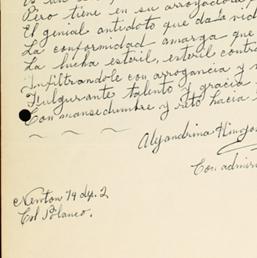 Pero tiene en su arrogadora
El genial antidoto que da la vid
La conformidad amarga que
La lucha esteril, esteril contr
Infiltrandole con arrogancia y
Fulgurante talento y gracia
Con mansedumbre y reto hacia
Alejandrina
Con admir
Newton 74 dp. 2
Col Polanco.